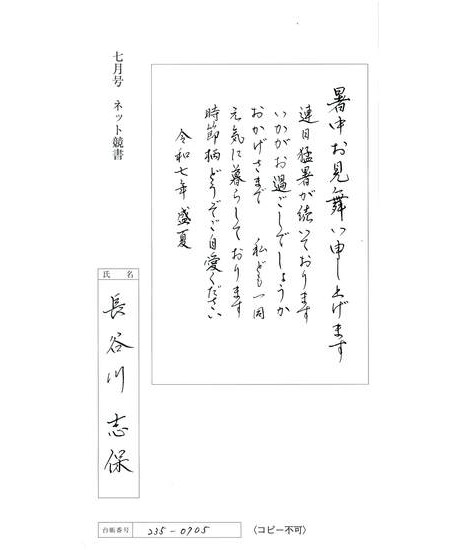 暑中お見舞い申し上げます
連日猛暑が続いております
いかがお過ごしでしょうか
おかげさまで 私ども一同
元気に暮らしております
時節柄どうぞご自愛ください
令和七年 盛夏
七月号 ネット競書
氏名
長谷川志保
台帳番号 235-0905
(コピー不可)